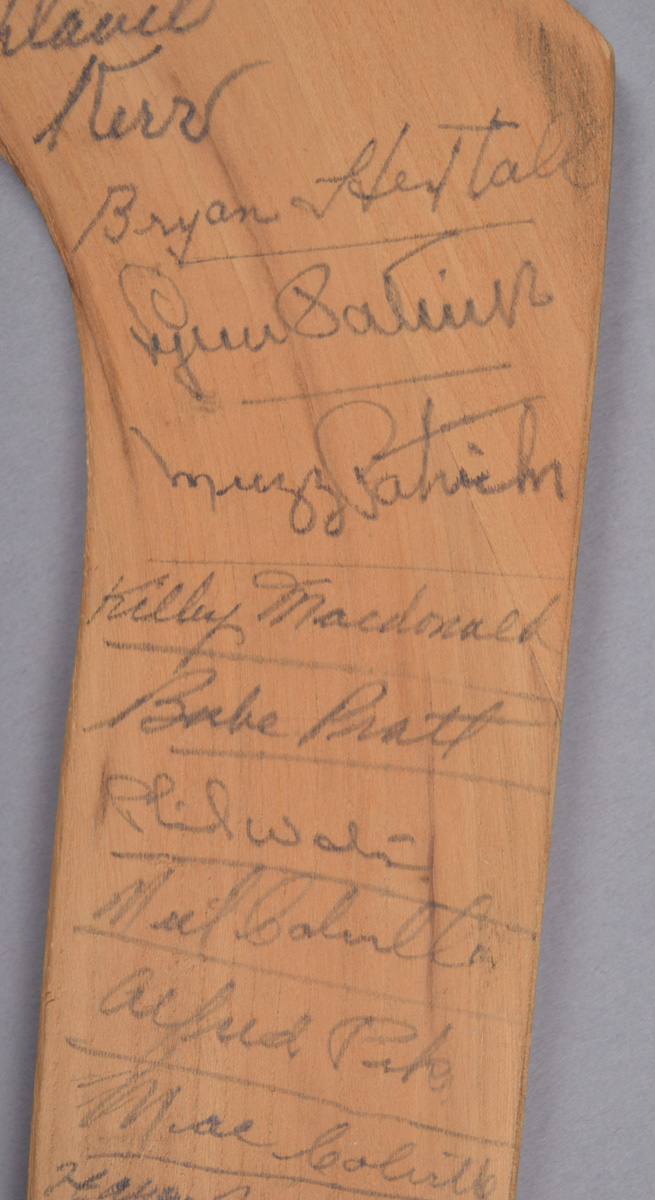 Kerr
Bryan Hextall
Lynn Patrick
Muzz Patrick
Kilby Macdonald
Babe Pratt
Phil Watson
Neil Colville
Alfred Pike
Mac Colville